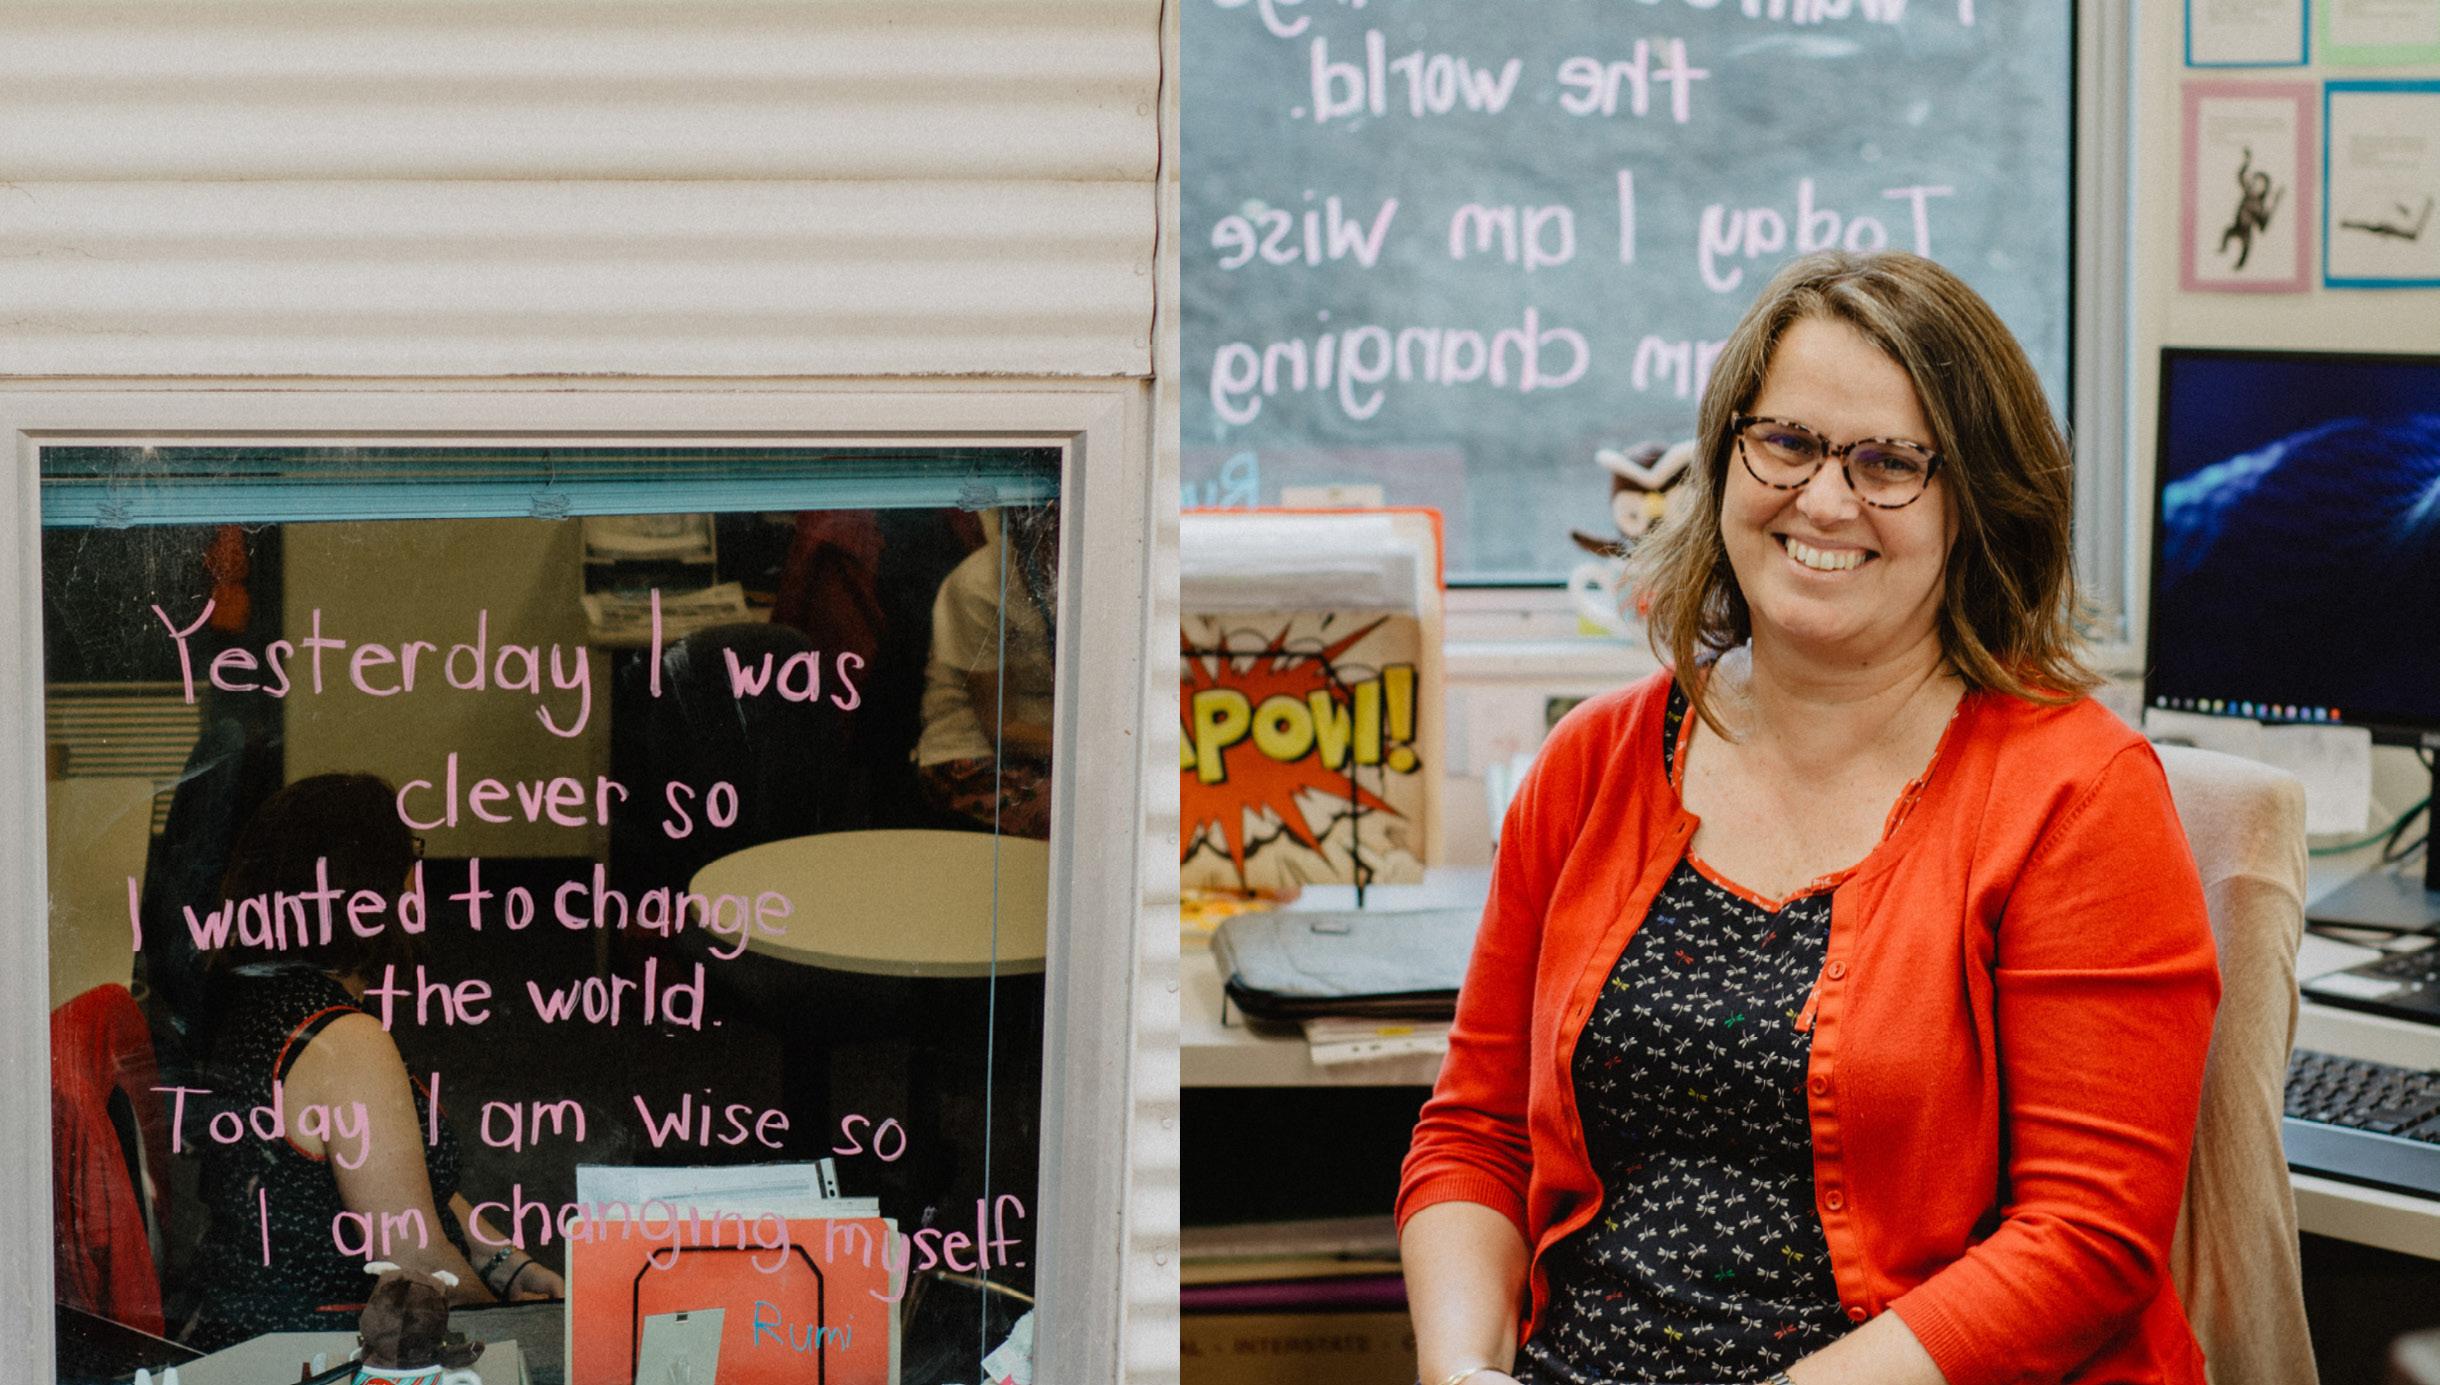 Yesterday I was
clever so
I wanted to change
the world.
Today I am wise so
I am changing myself.
Rumi
the world.
Today I am wise
am changing
Ru
APOW!
INTERSTATE